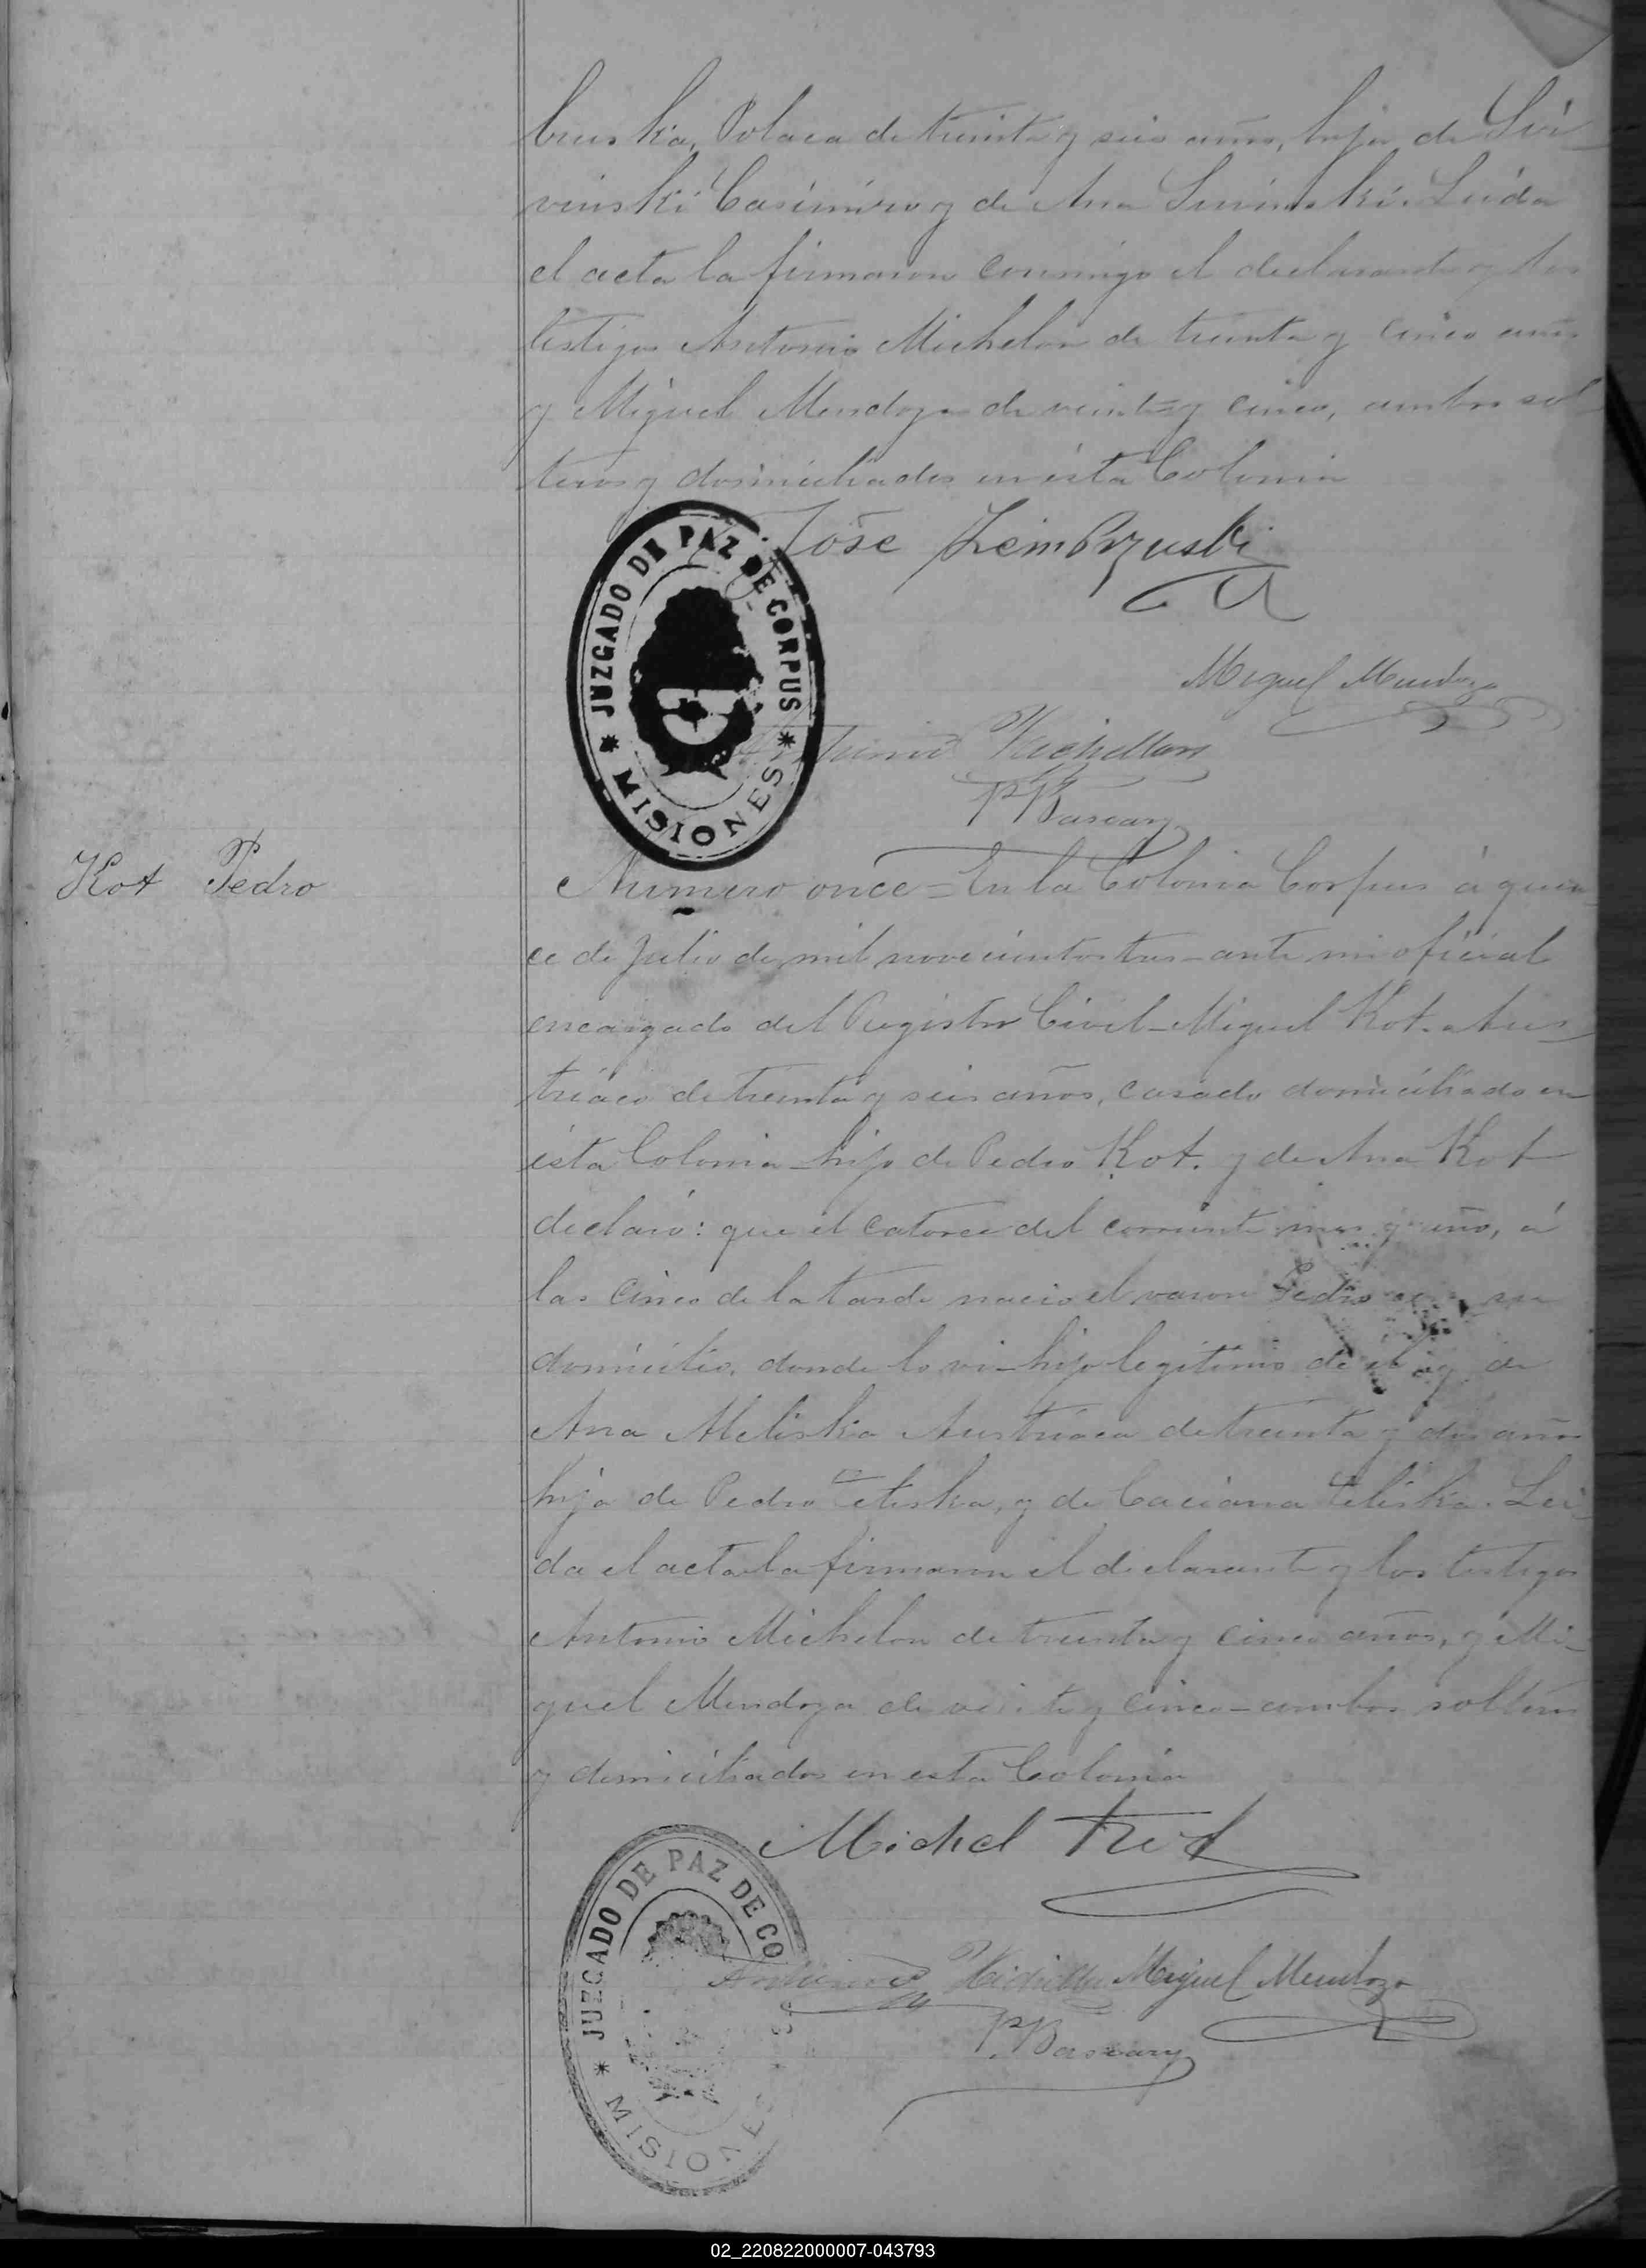 bruska, Polaca de treinta y seis años, hija de Svi
vinski Casimiro y de Ana Svivinski. Leida
el acta la firmaron conmigo el declarante y los
testigos Antonio Michelon de treinta y cinco años
y Miguel Mendoza de veinte y cinco, ambos sol
teros y domiciliados en ésta Colonia
José Zembrzuski
JUZGADO DE PAZ DE CORPUS
* MISIONES *
Miguel Mendoza
Antonio Michellon
P. Bascary
Kot Pedro
Numero once = En la Colonia Corpus á quin
ce de Julio de mil novecientos tres - ante mi oficial
encargado del Registro Civil - Miguel Kot. Aus
triaco de treinta y seis años, casado domiciliado en
ésta Colonia - hijo de Pedro Kot. y de Ana Kot
declaró: que el catorce del corriente mes y año, á
las cinco de la tarde nació el varon Pedro en su
domicilio, donde lo vi - hijo legitimo de el y de
Ana Meliska Austriaca de treinta y dos años
hija de Pedro Teliska, y de Caciana Teliska. Lei
da el acta la firmaron el declarante y los testigos
Antonio Michelon de treinta y cinco años, y Mi
guel Mendoza de veinte y cinco - ambos solteros
y domiciliados en esta Colonia
Michel Kot
JUZGADO DE PAZ DE CO
* MISIONES
Antonio Michellon Miguel Mendoza
P. Bascary
02_220822000007-043793